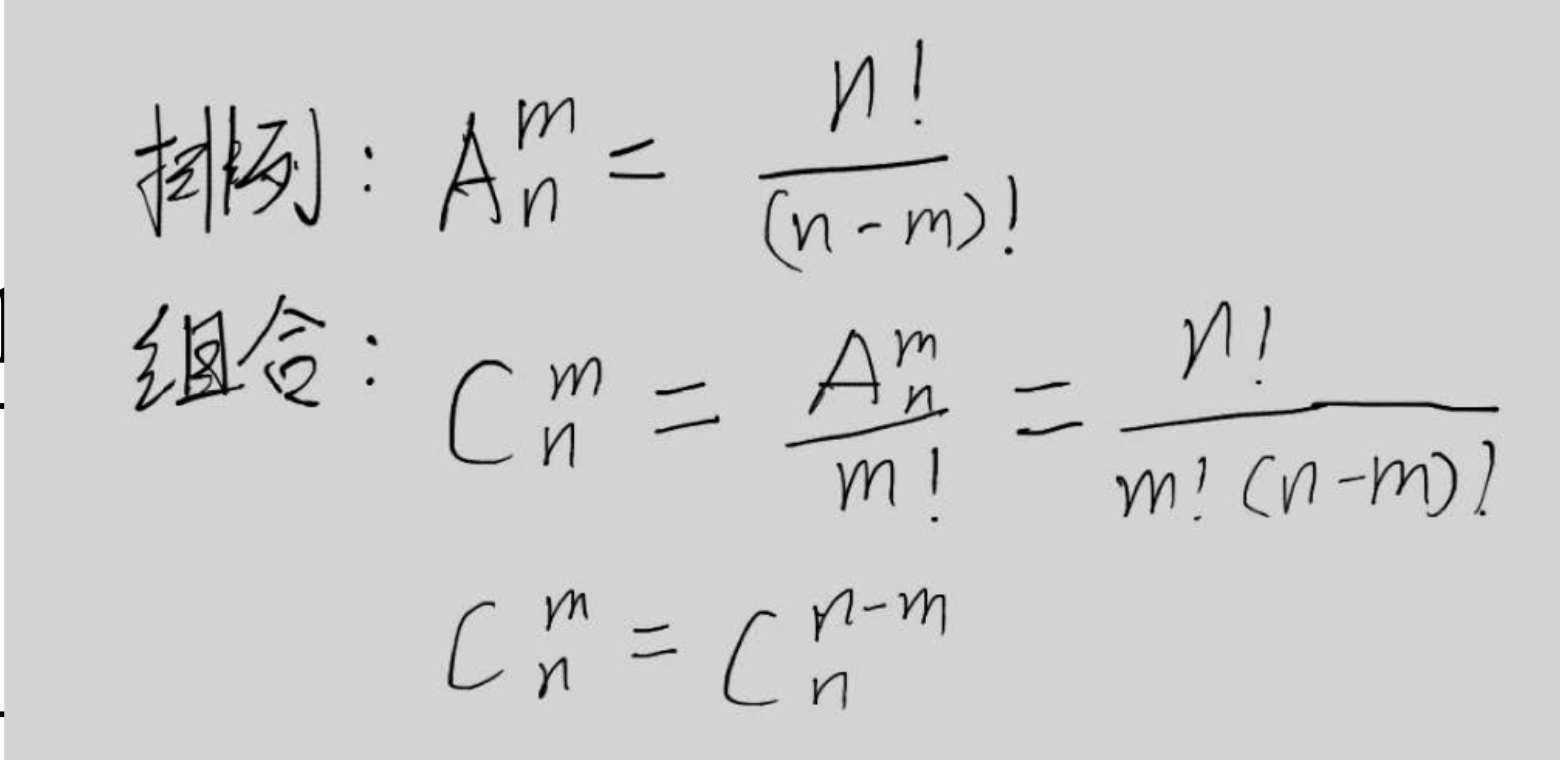 排列: A_n^m = n! / (n-m)!
组合: C_n^m = A_n^m / m! = n! / m!(n-m)!
C_n^m = C_n^{n-m}